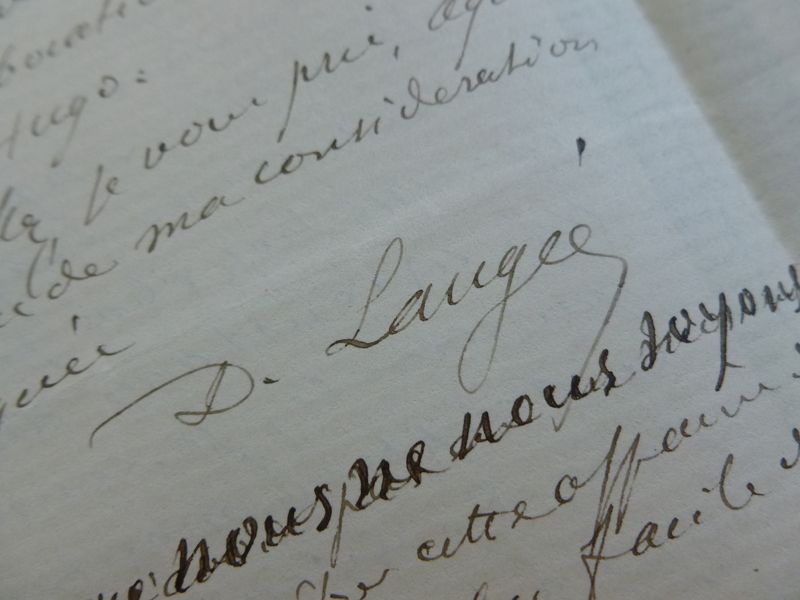 Hugo.
je vous prie,
de ma considération
D. Laugée
nous ne nous soyons
cette affaire
facile